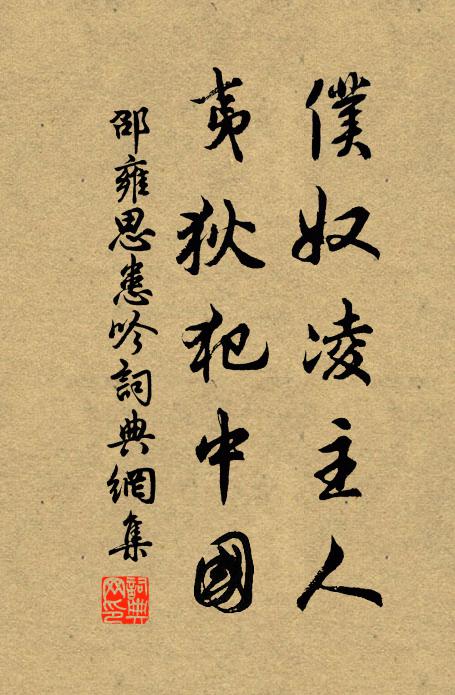 僕奴凌主人
夷狄犯中國
邵雍思患吟詞典網集
詞典網印